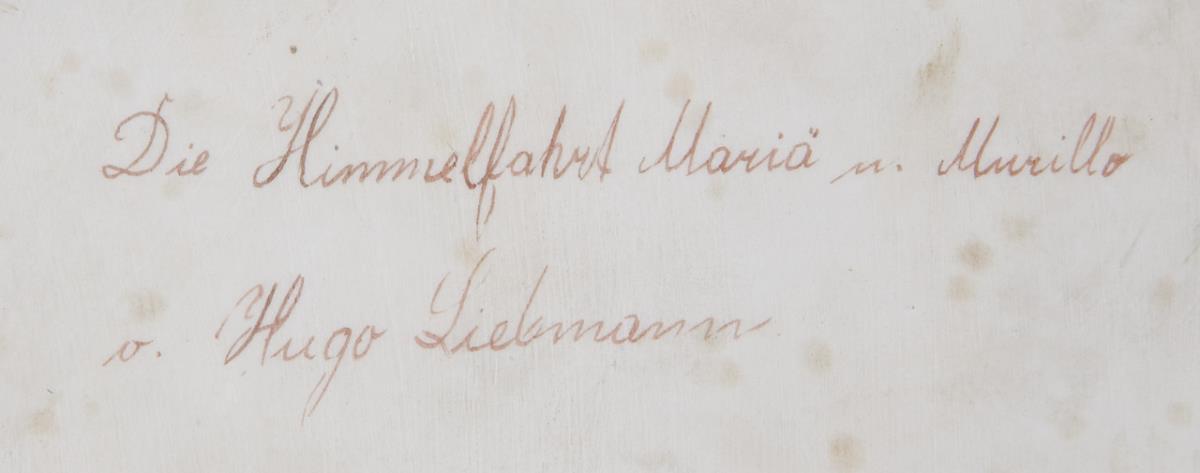 Die Himmelfahrt Mariä n. Murillo
v. Hugo Liebmann